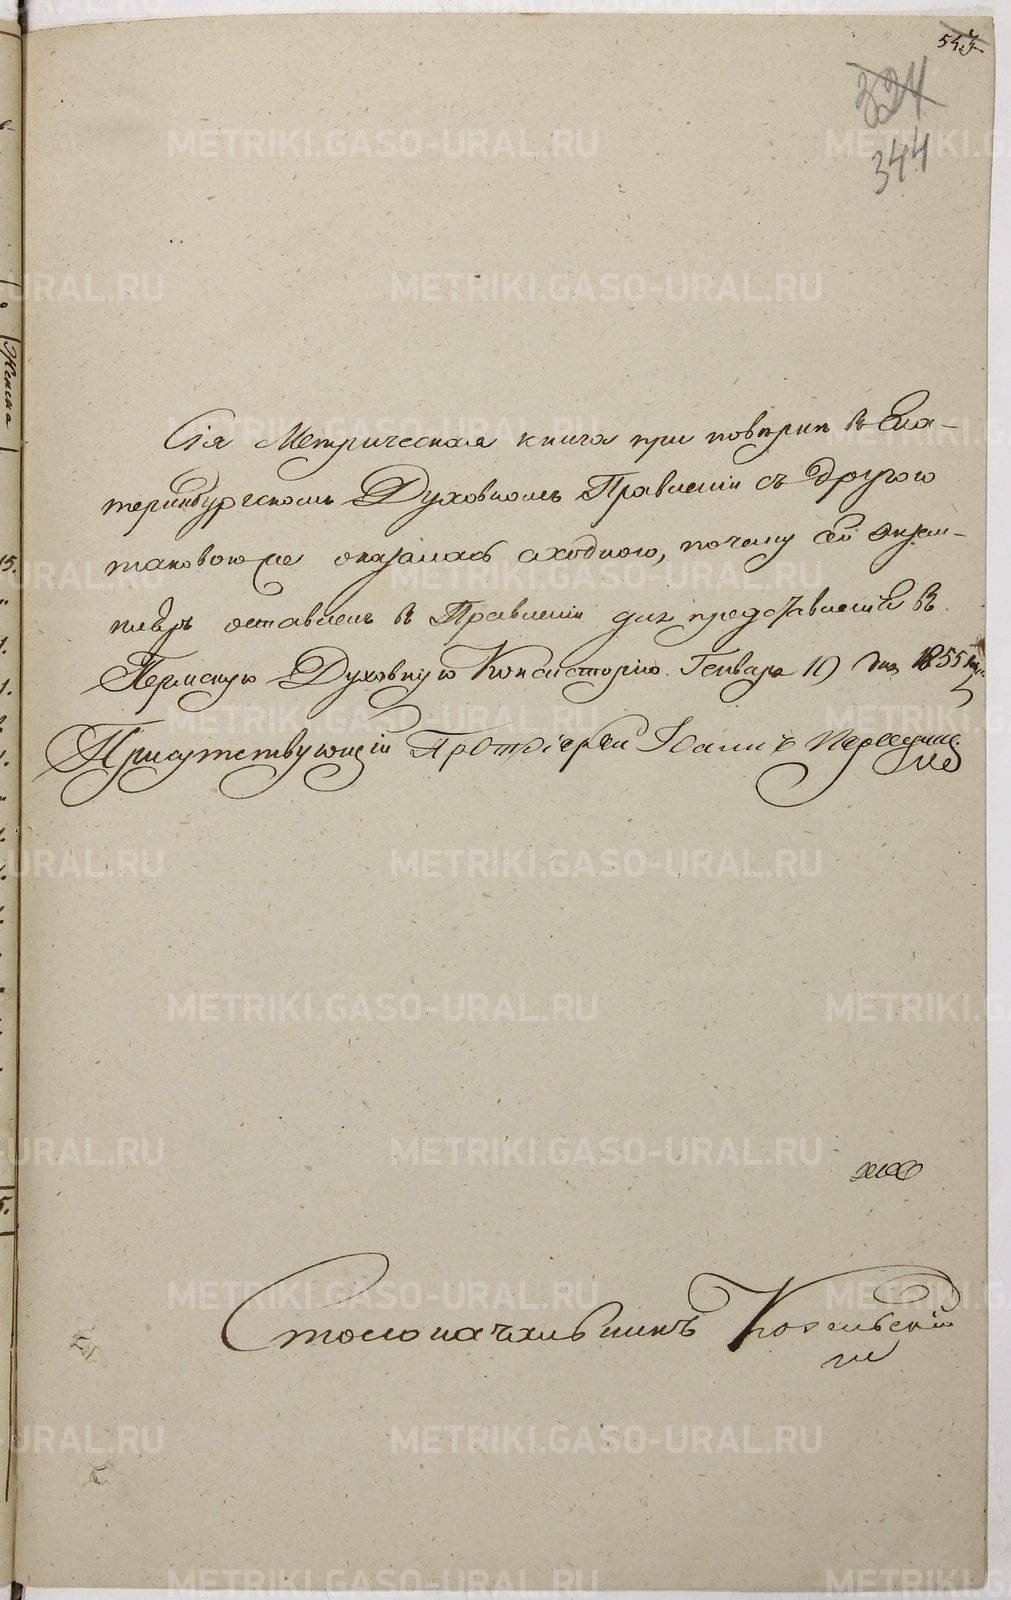 543
324
344
Сія Метрическая книга при повѣркѣ въ Ека-
теринбургскомъ Духовномъ Правленіи съ другою
таковою же оказалась сходною, почему сей экзем-
пляръ оставленъ въ Правленіи для представленія въ
Пермскую Духовную Консисторію. Генваря 10 дня 1855
Присутствующій Протоіерей Іоаннъ
Столоначальникъ
Женска
METRIKI.GASO-URAL.RU